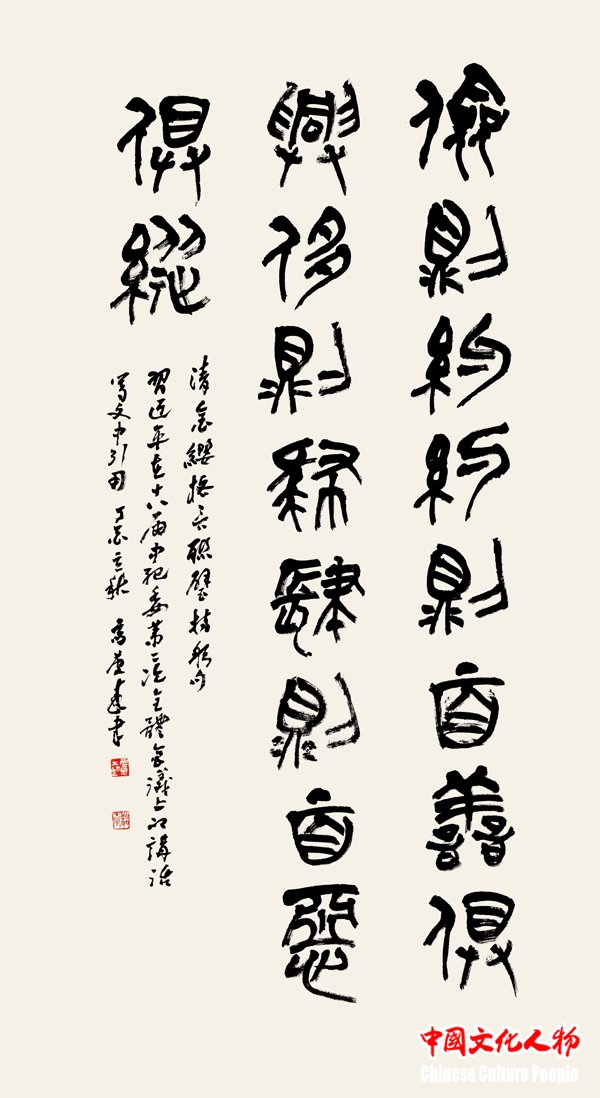 儉則約約則百善俱
興侈則肆肆則百惡
俱縱
清金纓格言聯璧持躬句
習近平在十八届中纪委第二次全體會議上的講話
等文中引用 丁酉立秋 高書
中國文化人物
Chinese Culture People